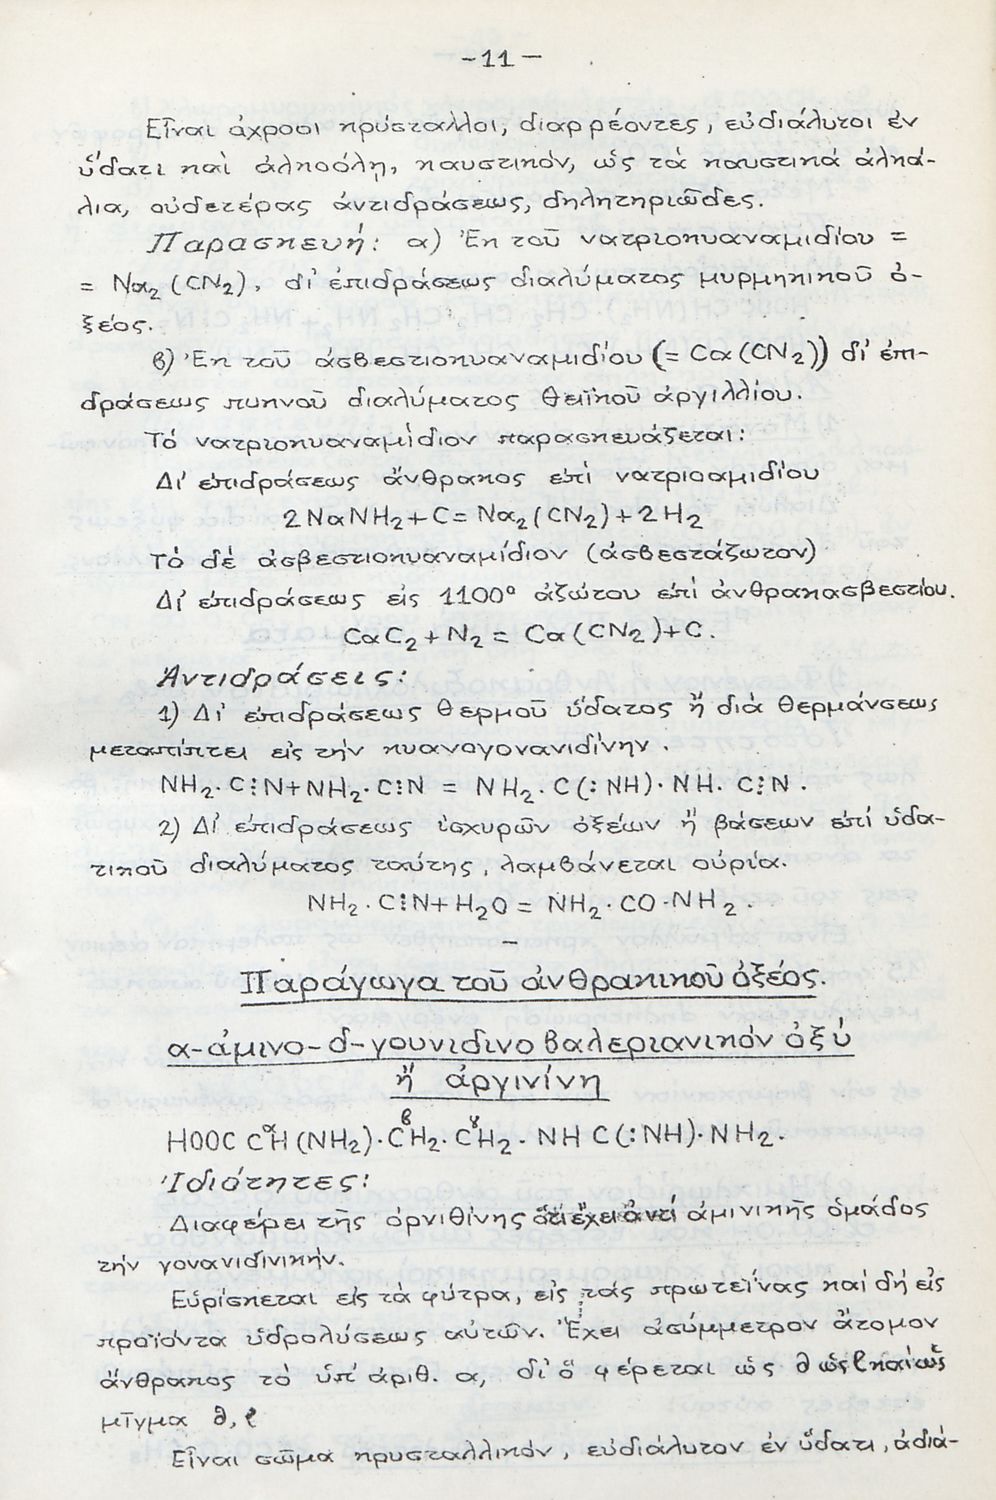 -11-
Εἶναι ἄχροοι κρύσταλλοι, διαρρέοντες, εὐδιάλυτοι ἐν
ὕδατι καὶ ἀλκοόλῃ, καυστικόν, ὡς τὰ καυστικά ἀλκά-
λια, οὐδετέρας ἀντιδράσεως, δηλητηριῶδες.
Παρασκευή: α) Ἐκ τοῦ νατριοκυαναμιδίου =
= Να2 (CN2), δι' ἐπιδράσεως διαλύματος μυρμηκικοῦ ὀ-
ξέος.
β) Ἐκ τοῦ ἀσβεστιοκυαναμιδίου (= Ca (CN2)) δι' ἐπι-
δράσεως πυκνοῦ διαλύματος θειϊκοῦ ἀργιλλίου.
Τό νατριοκυαναμίδιον παρασκευάζεται:
Δι' ἐπιδράσεως ἄνθρακος ἐπί νατριοαμιδίου
2NaNH2+C= Na2(CN2)+2H2
Τό δέ ἀσβεστιοκυαναμίδιον (ἀσβεστάζωτον)
Δι' ἐπιδράσεως εἰς 1100° ἀζώτου ἐπί ἀνθρακασβεστίου.
CaC2+N2= Ca(CN2)+C.
Ἀντιδράσεις:
1) Δι' ἐπιδράσεως θερμοῦ ὕδατος ἤ διά θερμάνσεως
μεταπίπτει εἰς τήν κυανογουανιδίνην.
NH2·C⋮N+NH2·C⋮N = NH2·C(:NH)·NH·C⋮N.
2) Δι' ἐπιδράσεως ἰσχυρῶν ὀξέων ἤ βάσεων ἐπί ὑδα-
τικοῦ διαλύματος ταύτης, λαμβάνεται οὐρία.
NH2·C⋮N+H2O= NH2·CO·NH2.
Παράγωγα τοῦ ἀνθρακικοῦ ὀξέος.
α-ἀμινο-δ-γουνιδινο βαλεριανικόν ὀξύ
ἤ ἀργινίνη
HOOC CαH(NH2)·CβH2·CγH2·NHC(:NH)·NH2.
Ἰδιότητες:
Διαφέρει τῆς ὀρνιθίνης ὅτι ἔχει ἀντί ἀμινικῆς ὁμάδος
τήν γουανιδινικήν.
Εὑρίσκεται εἰς τὰ φύτρα, εἰς τάς πρωτεΐνας καί δή εἰς
προϊόντα ὑδρολύσεως αὐτῶν. Ἔχει ἀσύμμετρον ἄτομον
ἄνθρακος τό ὑπ' ἀριθ. α, δι' ὅ φέρεται ὡς d ὡς l καί ὡς
μῖγμα d, l
Εἶναι σῶμα κρυσταλλικόν, εὐδιάλυτον ἐν ὕδατι, ἀδιά-